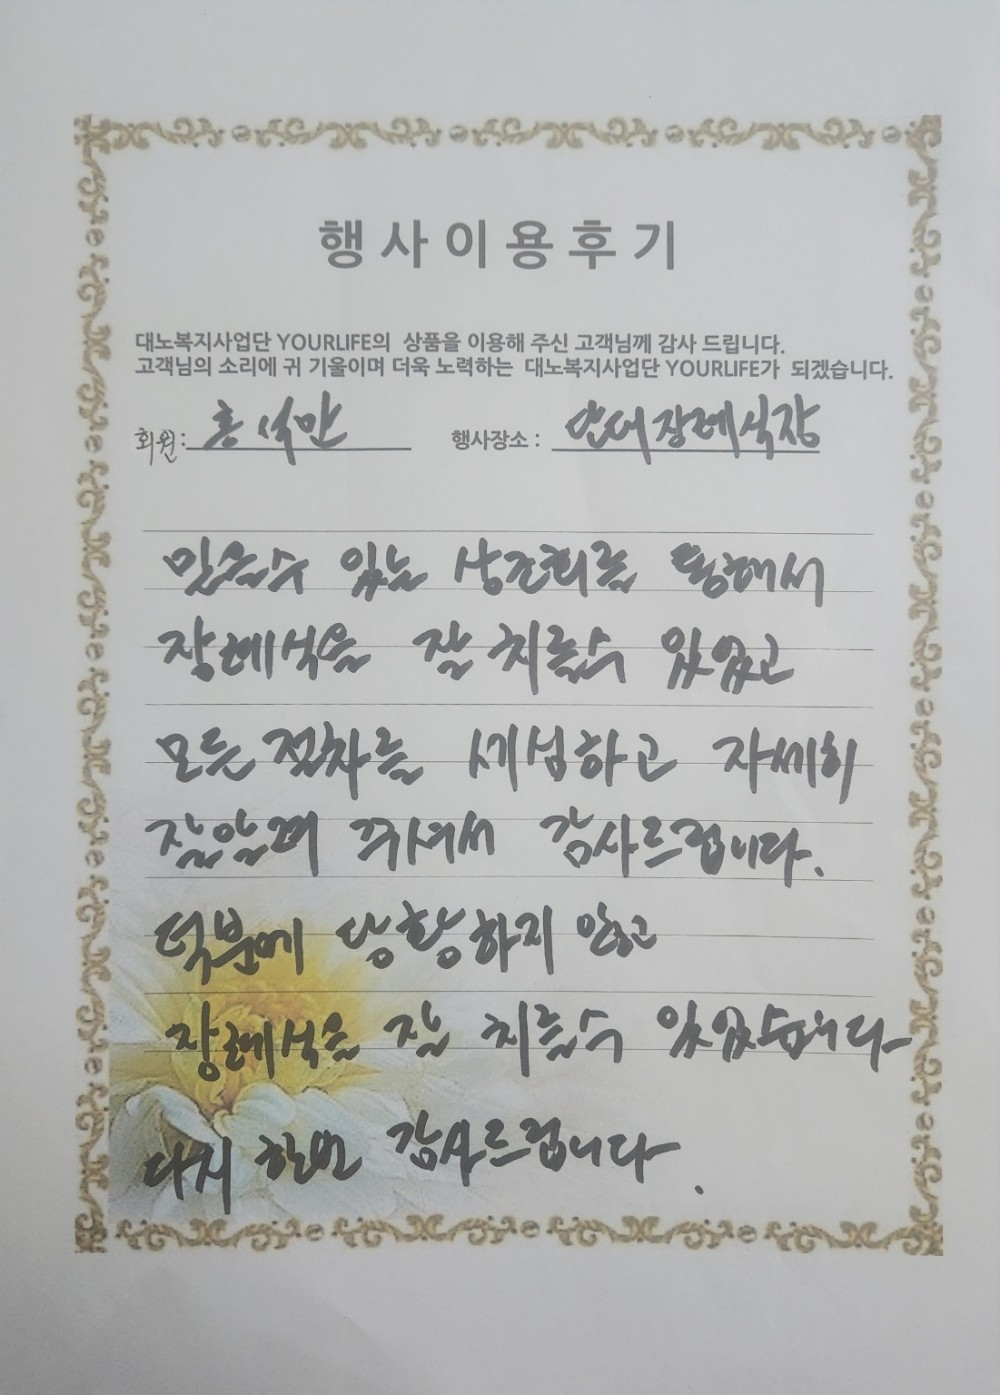 행사이용후기
대노복지사업단 YOURLIFE의 상품을 이용해 주신 고객님께 감사 드립니다.
고객님의 소리에 귀 기울이며 더욱 노력하는 대노복지사업단 YOURLIFE가 되겠습니다.
회원: 홍석만 행사장소 : 연대장례식장
믿을수 있는 상조회를 통해서
장례식을 잘 치를수 있었고
모든 절차를 세심하고 자세히
잘알려 주셔서 감사드립니다.
덕분에 당황하지 않고
장례식을 잘 치를수 있었습니다
다시 한번 감사드립니다.